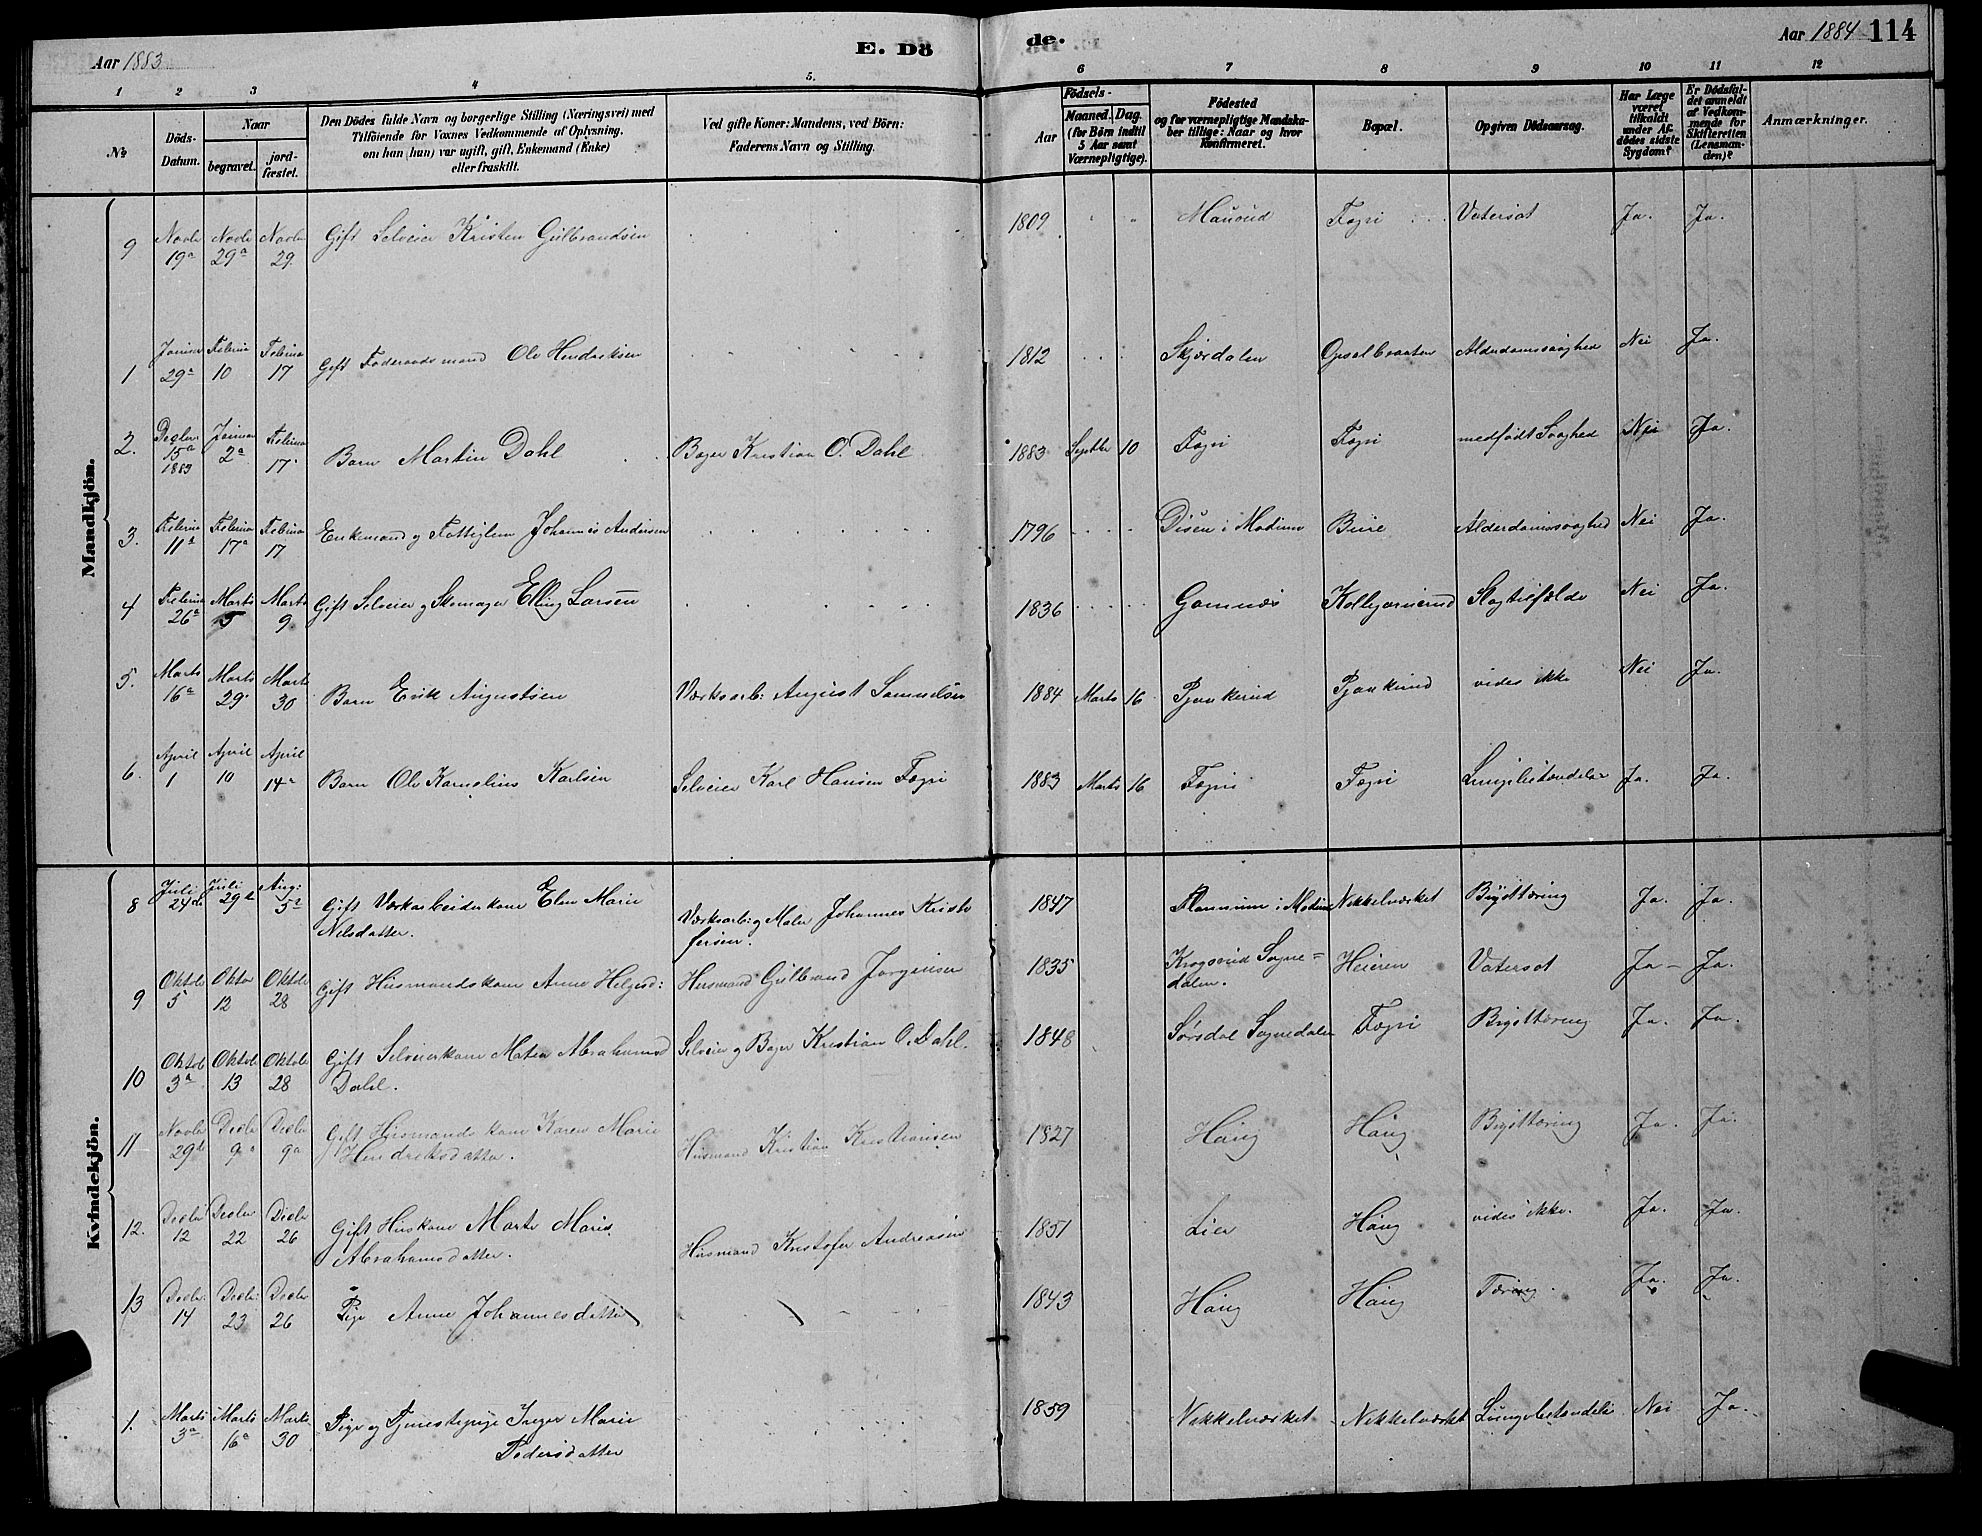 Aar 1883
E. Dö
de.
Aar 1884 114
1 2 3 4 5. 6 7 8 9 10 11 12
№
Döds-
Datum.
Naar
begravet.
jord-
fæstet.
Den Dödes fulde Navn og borgerlige Stilling (Næringsvei) med
Tilföiende for Voxnes Vedkommende af Oplysning,
om han (hun) var ugift, gift, Enkemand (Enke)
eller fraskilt.
Ved gifte Koner: Mandens, ved Börn:
Faderens Navn og Stilling.
Födsels-
Aar
Maaned. Dag.
(for Börn indtil
5 Aar samt
Værnepligtige).
Födested
og for værnepligtige Mandska-
ber tillige: Naar og hvor
konfirmeret.
Bopæl.
Opgiven Dödsaarsag.
Har Læge
været
tilkaldt
under Af-
dödes sidste
Sygdom?
Er Dödsfal-
det anmeldt
af Vedkom-
mende for
Skifteretten
(Lensman-
den)?
Anmærkninger.
Mandkjön.
9 Novbr 19a Novbr 29a Novbr 29. Gift Selveier Kristen Gulbrandsen 1809 Fægri Vatersot Ja. Ja.
1 29a 10 17 Gift Föderaadsmand Ole Hendriksen 1812 Skjærdalen Opsalbraaten Alderdomssvaghed Nei Ja.
2. Decbr 15a 1883 2a 17 Barn Martin Dahl Bager Kristian O. Dahl 1883 Septbr 10 Fægri Fægri medfödt Svaghed Nei Ja.
3. 11a 17a 17 Enkemand og Fattiglem Johannes Andersen 1796 Disen i Modum Bure Alderdomssvaghed Nei Ja.
4 26a Marts 5 Marts 9 Gift Selveier og Skomager Elling Larsen 1836 Gomnæs Kolbjörnsrud Slagtilfælde Nei Ja.
5. Marts 16a Marts 29 Marts 30 Barn Erik Augustsen Værksarb: August Samuelsen 1884 Marts 16 Pjaakerud Pjaakerud vides ikke Nei Ja.
6. April 1 April 10 April 14a Barn Ole Kornelius Karlsen Selveier Karl Hansen Fægri 1883 Marts 16 Fægri Fægri Lungebetændelse Ja. Ja.
Kvindekjön.
8 Juli 24de Juli 29de Aug: 5te Gift Værkarbeiderkone Elen Marie
Nilsdatter. Værksarb: og Maler Johannes Kristo
fersen. 1847 i Modum Nikkelværket Brysttæring Ja. Ja.
9 Oktobr 5 Oktbr 12 Oktobr 28 Gift Husmandskone Anne Helgesd: Husmand Gulbrand Jörgensen 1835 Krogsrud Sogne=
dalen. Heieren Vatersot Ja – Ja.
10 Oktob 3a Oktob 13 Oktob 28 Gift Selveierkone Mathea Abrahamsd
Dahl. Selveier og Bager Kristian O. Dahl. 1848 Sörsdal Sognedalen Fægri Brysttæring Ja. Ja.
11 Novbr 29de Decbr 9a Decbr 9a Gift Husmandskone Karen Marie
Hendriksdatter. Husmand Kristian Kristiansen 1827 Haug Haug Brysttæring Ja. Ja.
12. Decbr 12 Decbr 22 Decbr 26 Gift Huskone Marte Marie
Abrahamsdatter. Husmand Kristofer Andreasen 1851 Lier Haug vides ikke. Ja. Ja.
13 Decbr 14 Decbr 23 Decbr 26 Pige Anne Johannesdatter 1843 Haug Haug Tæring. Ja. Ja.
1. Marts 3a Marts 16a Marts 30 Pige og Tjenestepige Inger Marie
Pedersdatter 1859 Nikkelværket Nikkelværket Lungebetændelse Nei Ja.